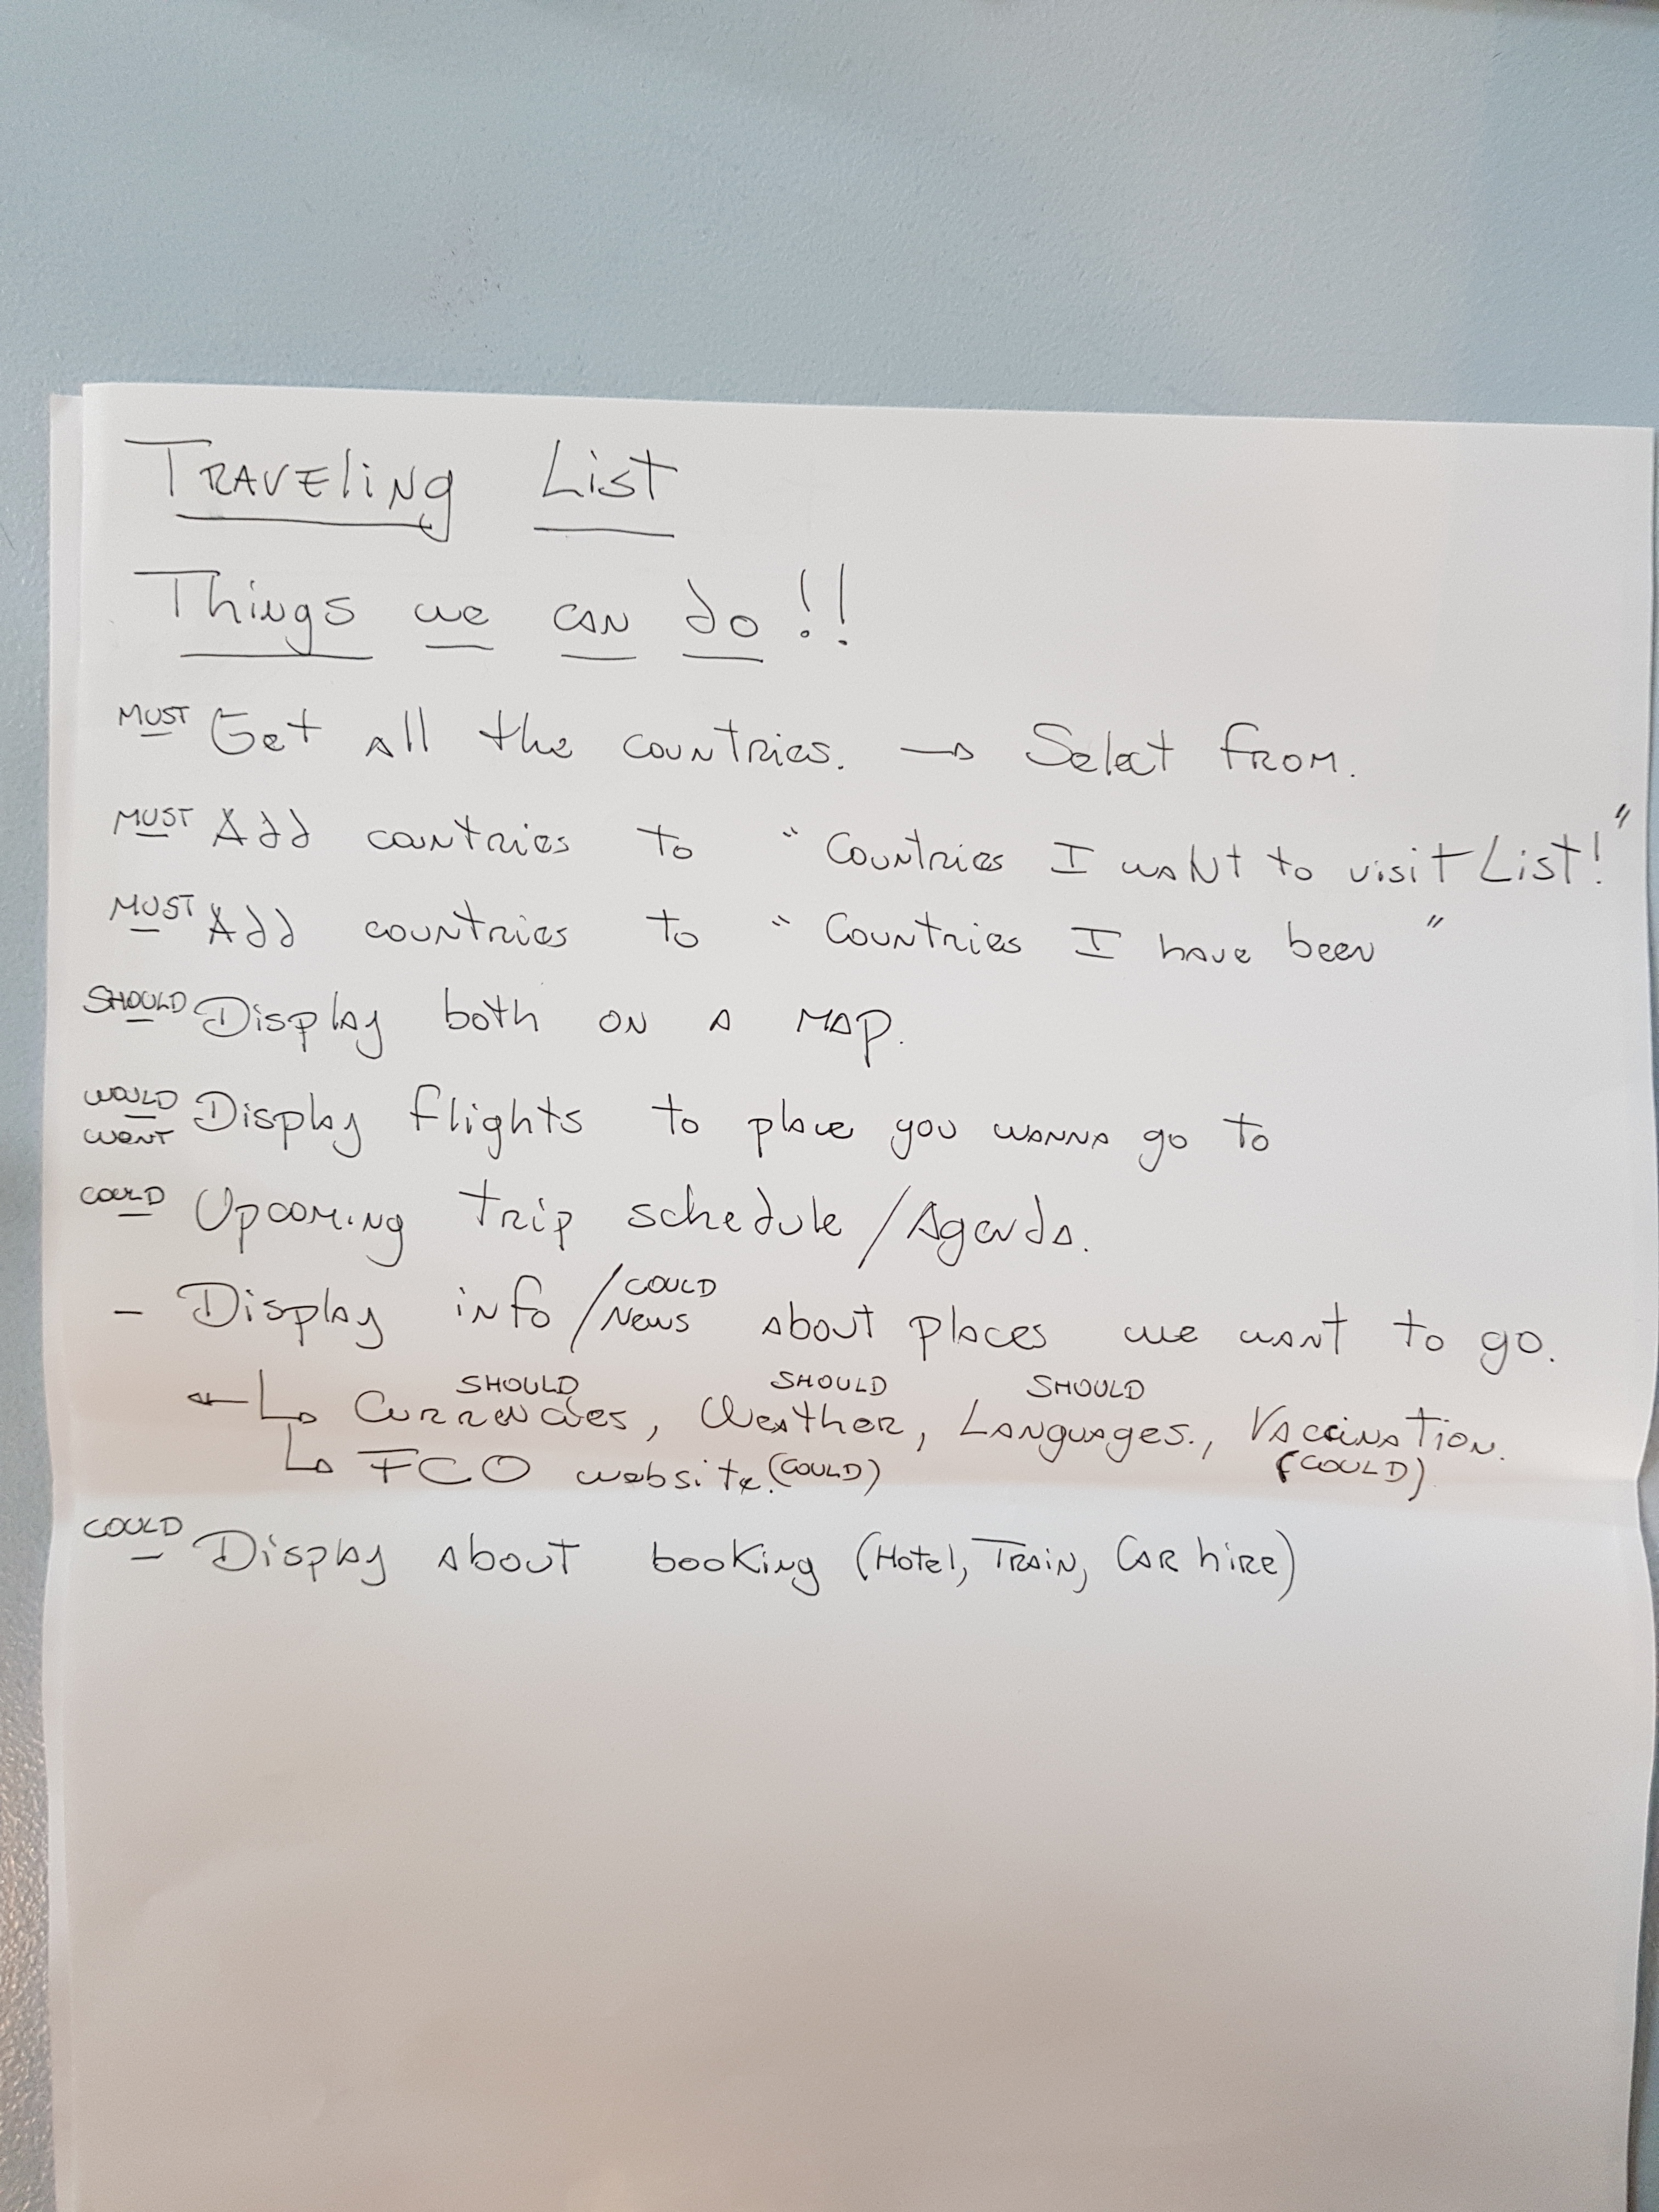 Traveling List
Things we can do!!
MUST Get all the countries. → Select from.
MUST Add countries to "Countries I want to visit List!"
MUST Add countries to "Countries I have been"
SHOULD Display both on a map.
WOULD Display flights to place you wanna go to
WONT
COULD Upcoming trip schedule/Agenda.
COULD
- Display info/News about places we want to go.
SHOULD SHOULD SHOULD
Currencies, Weather, Languages., Vaccination.
(COULD)
FCO website. (COULD)
COULD Display about booking (Hotel, Train, Car hire)